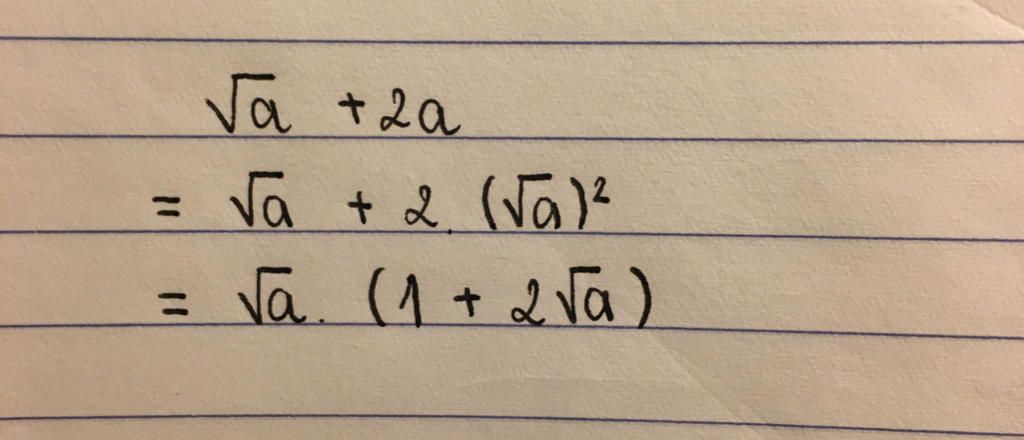 √a + 2a
= √a + 2. (√a)²
= √a. (1 + 2√a)